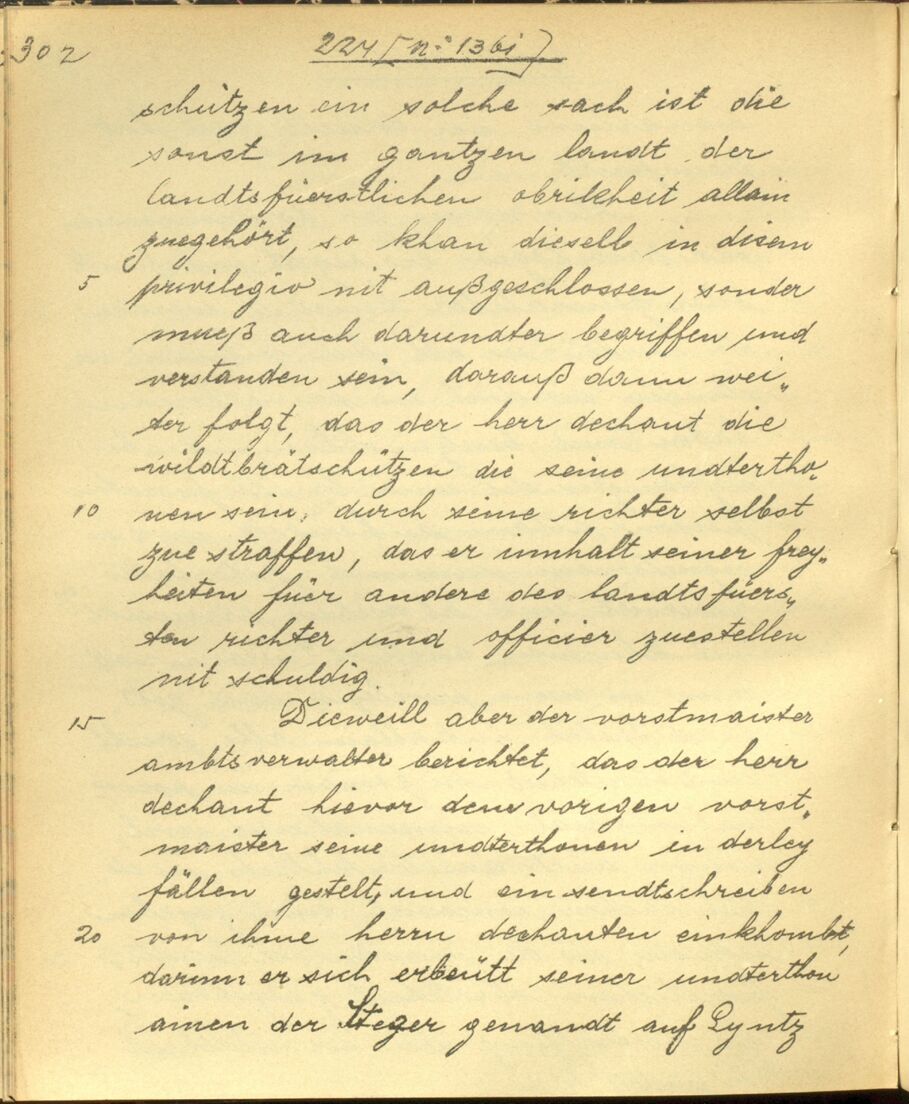 302
224 [n: 136i]
schützen ein solche sach ist die
sonst im gantzen landt der
landtsfüerstlichen obrikheit allain
zuegehört, so khan dieselb in disem
5 privilegio nit außgeschlossen, sonder
mueß auch darundter begriffen und
verstanden sein, darauß dann wei„
ter folgt, das der herr dechant die
wildtbrätschützen die seine undertho„
10 nen sein, durch seine richter selbst
zue straffen, das er innhalt seiner frey„
heiten für andere des landtsfüers„
ten richter und officier zuestellen
nit schuldig.
15 Dieweill aber der vorstmaister
ambtsverwalter berichtet, das der herr
dechant hievor dem vorigen vorst„
maister seine undterthonen in derley
fällen gestelt, und ein sendtschreiben
20 von ihme herrn dechanten einkhombt,
darinn er sich erbeütt seiner undterthon
ainen der Steger genandt auf Lyntz